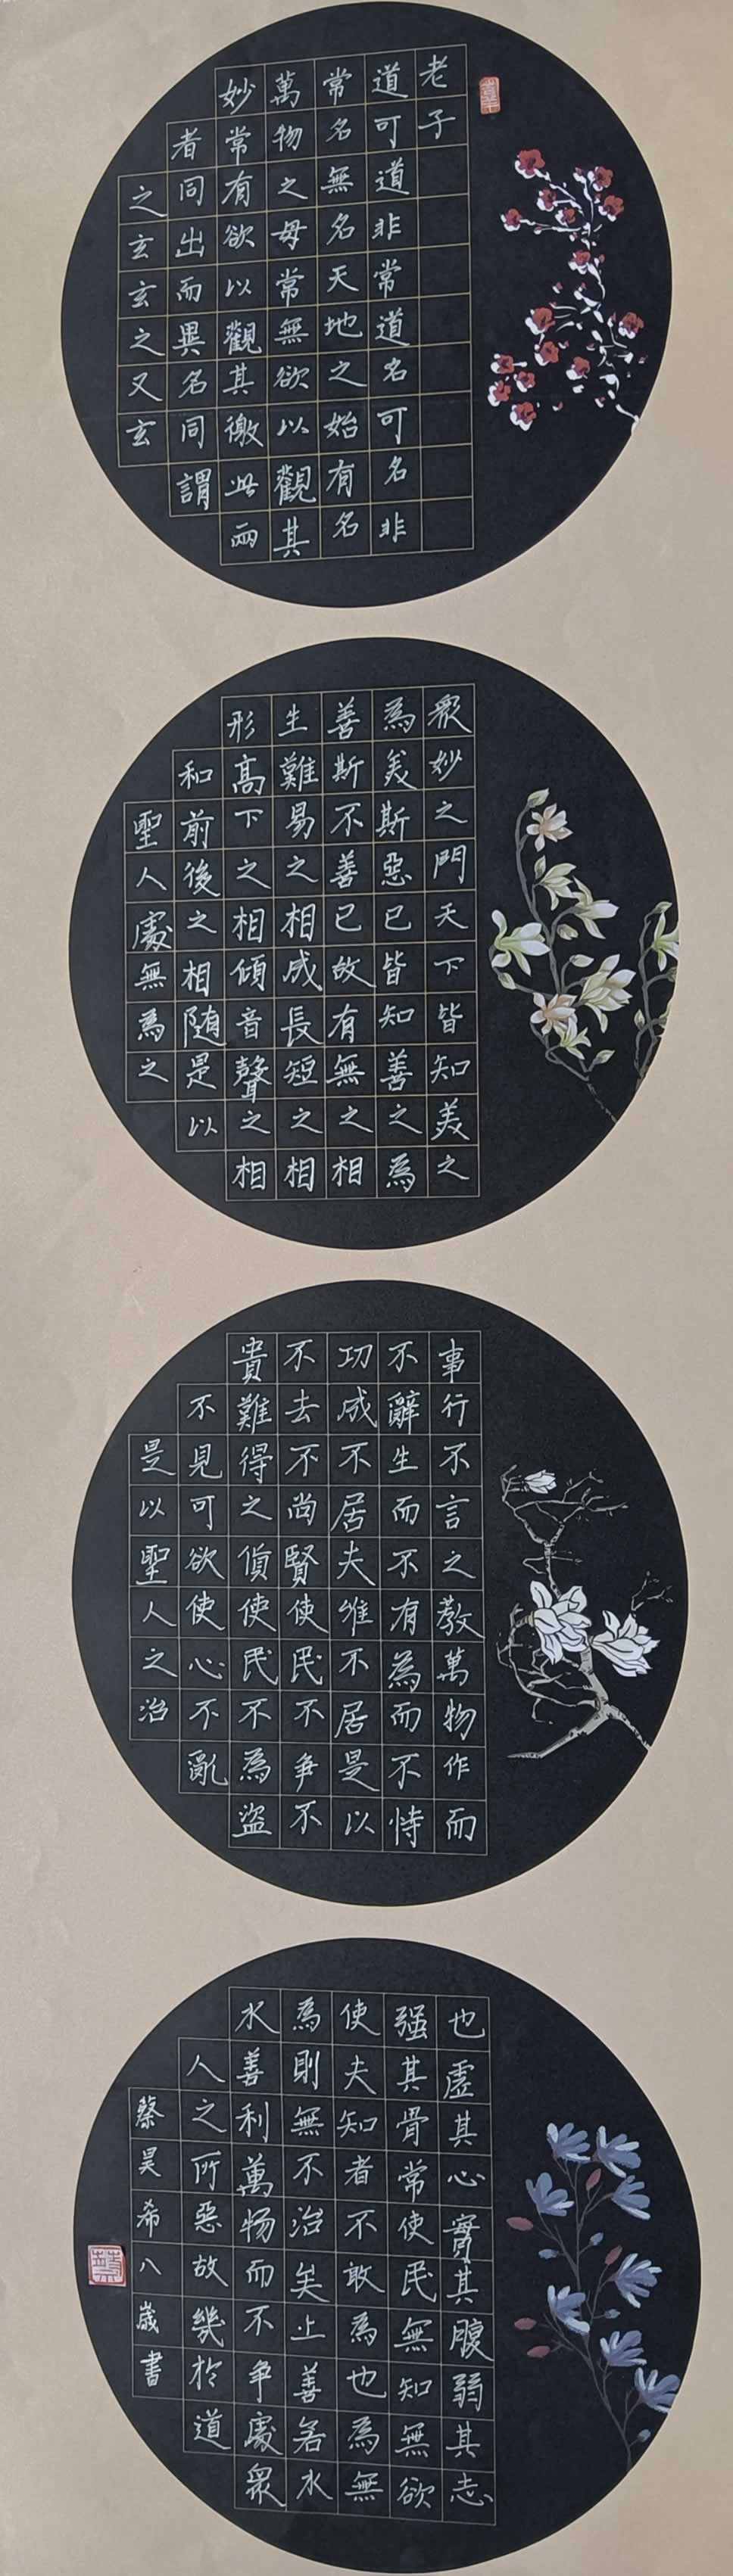 老子
道可道非常道名可名非
常名無名天地之始有名
萬物之母常無欲以觀其
妙常有欲以觀其徼此兩
者同出而異名同謂
之玄玄之又玄
眾妙之門天下皆知美之
為美斯惡已皆知善之為
善斯不善已故有無之相
生難易之相成長短之相
形高下之相傾音聲之相
和前後之相随是以
聖人處無為之
事行不言之教萬物作而
不辭生而不有為而不恃
功成不居夫維不居是以
不去不尚賢使民不爭不
貴難得之貨使民不為盜
不見可欲使心不亂
是以聖人之治
也虛其心實其腹弱其志
强其骨常使民無知無欲
使夫知者不敢為也為無
為則無不治矣上善若水
水善利萬物而不爭處眾
人之所惡故幾於道
蔡昊希八歲書